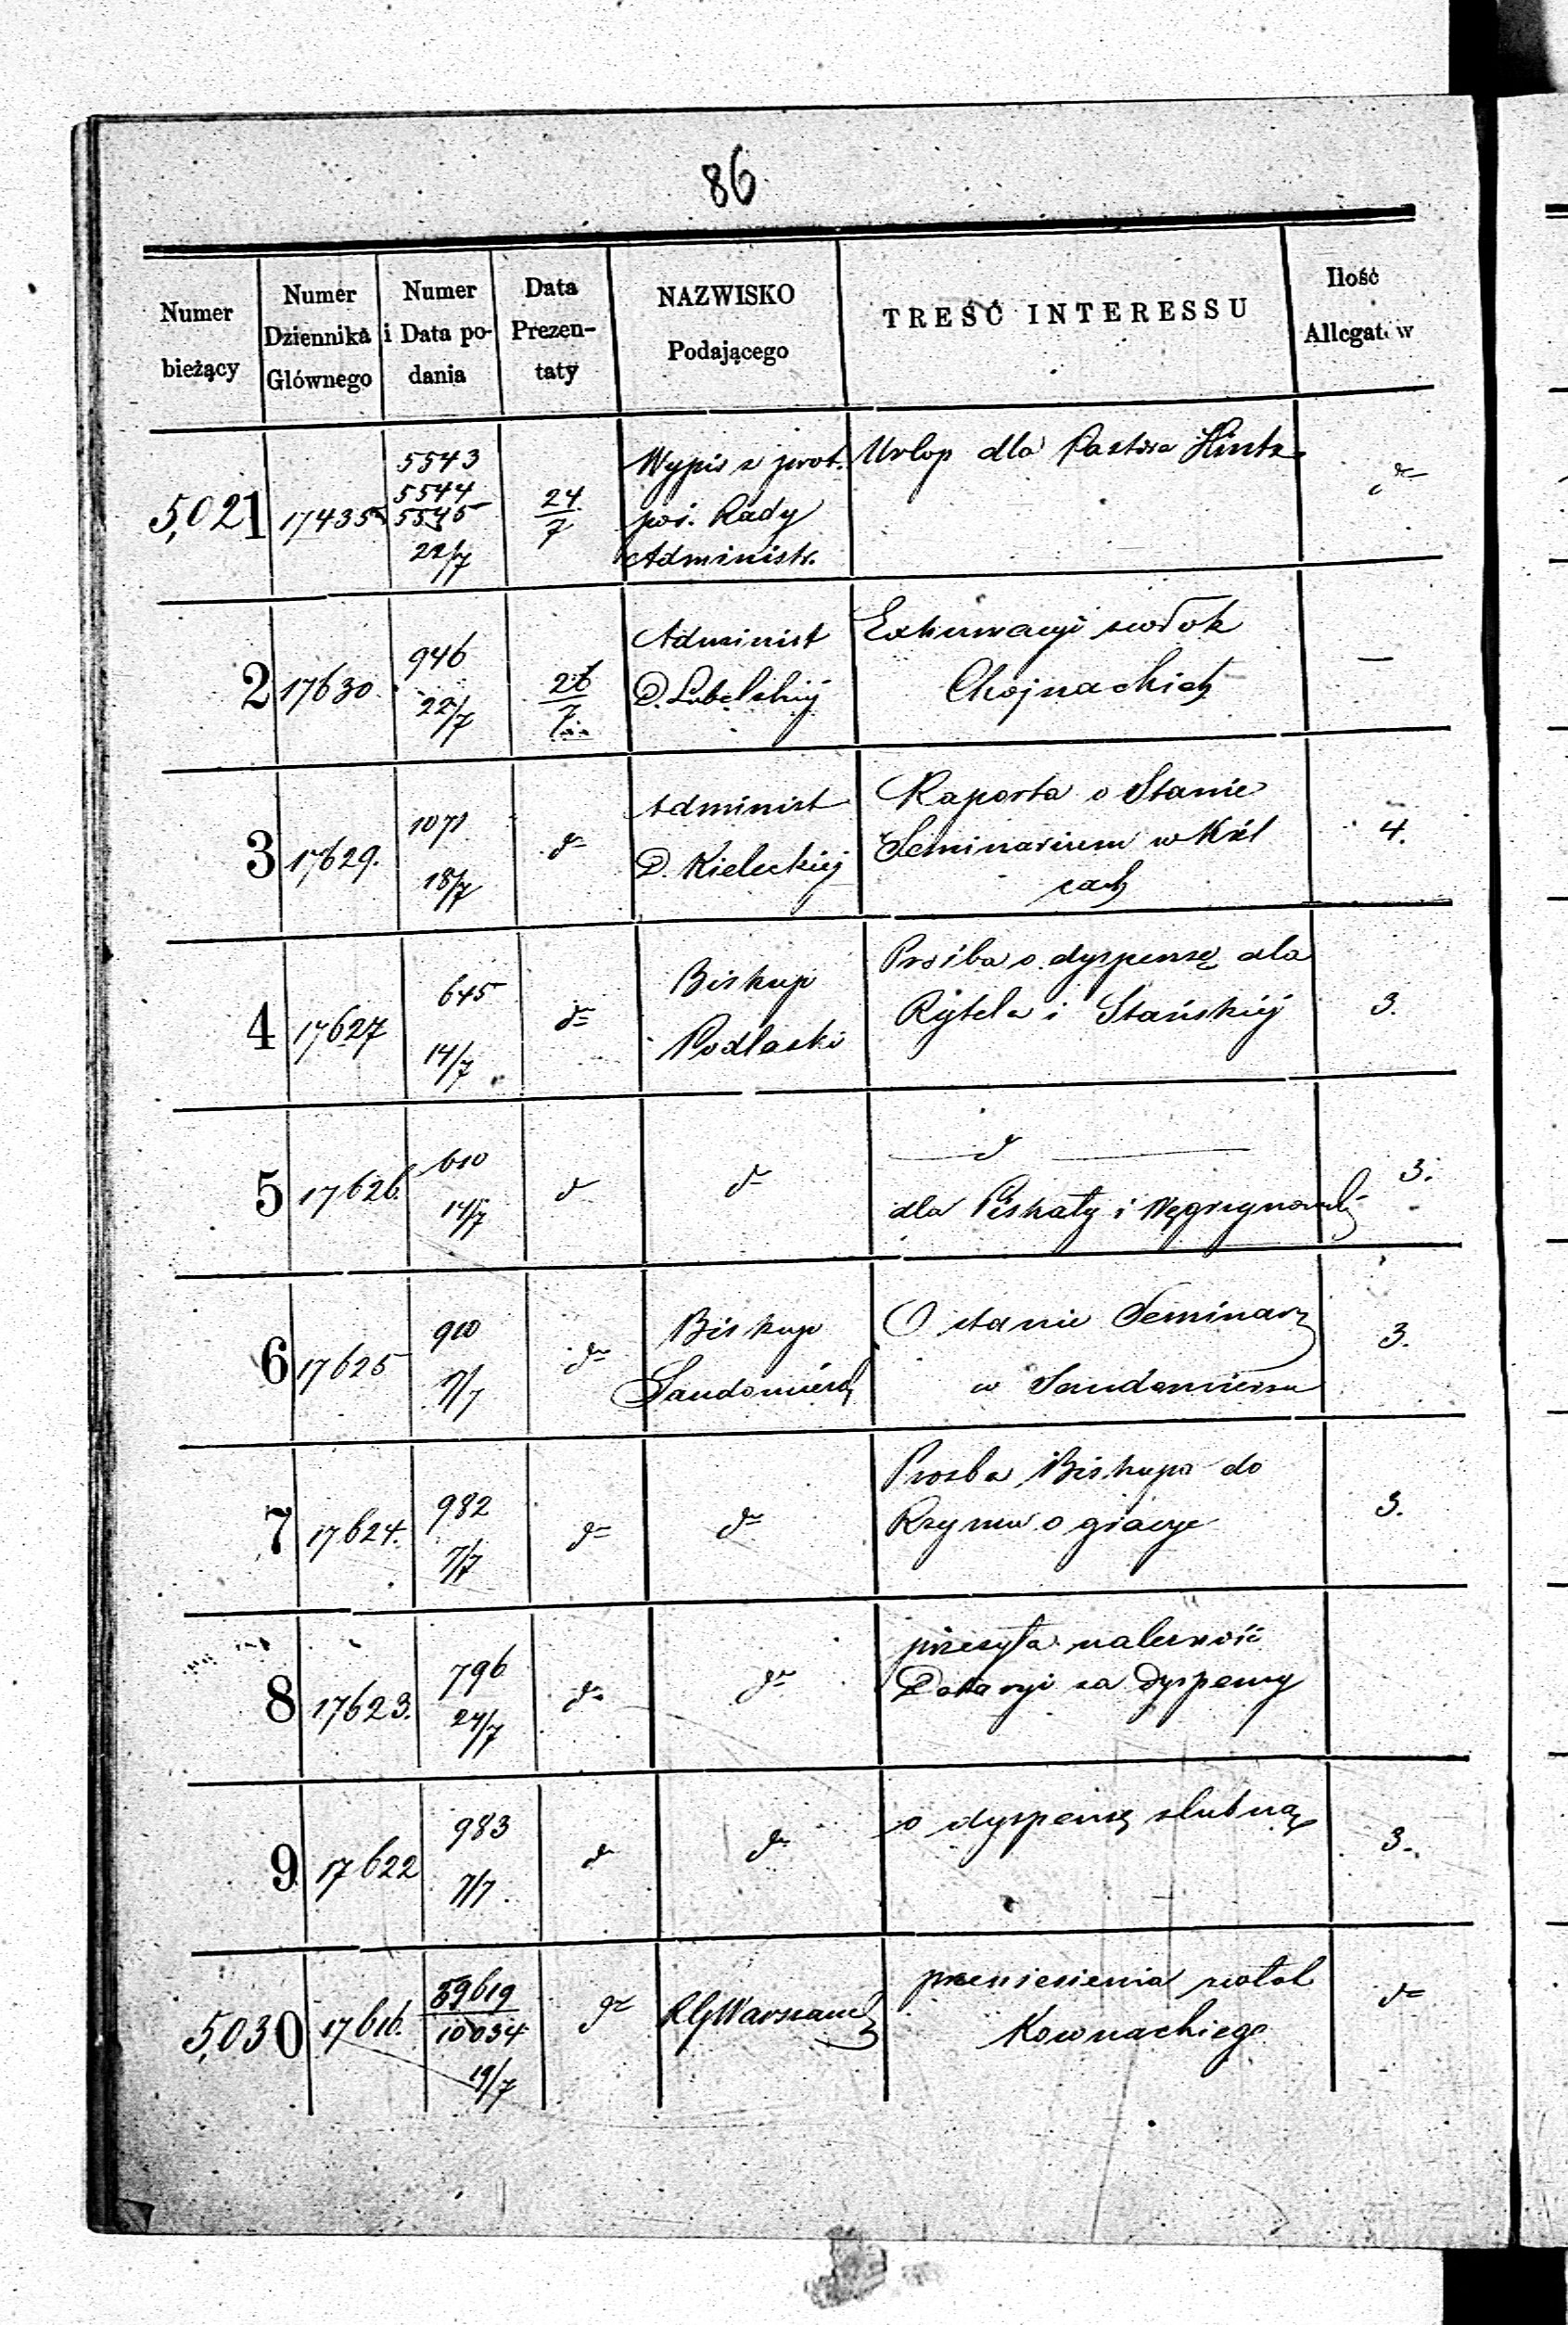 86
Numer bieżący
Numer Dziennika Głównego
Numer i Data podania
Data Prezentaty
NAZWISKO Podającego
TREŚĆ INTERESSU
Ilość Allegatów
5,021 17435 5543 5544 5545 22/7 24/7
Wypis z prot.
pos. Rady
Administr.
Urlop dla Pastora Hintz
d-
2 17630. 946 22/7 26/7
Administ
D. Lubelskiéj
Exhumacyi zwłok
Chojnackich
—
3 17629. 1071 18/7 d-
Administ
D. Kieleckiéj
Raporta o Stanie
Seminarium w Kiel
cach
4.
4 17627 645 14/7 d-
Biskup
Podlaski
Prośba o dyspensę dla
Rytela i Stańskiéj
3.
5 17626. 610 14/7 d d-
d
dla Piskały i
3.
6 17625 910 7/7 d-
Biskup
O stanie Seminar
w Sandomierzu
3.
7 17624. 982 7/7 d- d-
Prosba Biskupa do
Rzymu o
3.
8 17623. 796 24/7 d- d-
przesyła należność
Dataryi za dyspensy
9 17622 983 7/7 d d-
o dyspensę slubną
3.
5,030 17616. 39619 10034 19/7 d-
RGWarszaw
przeniesienia zwłok
Kownackiego
d-